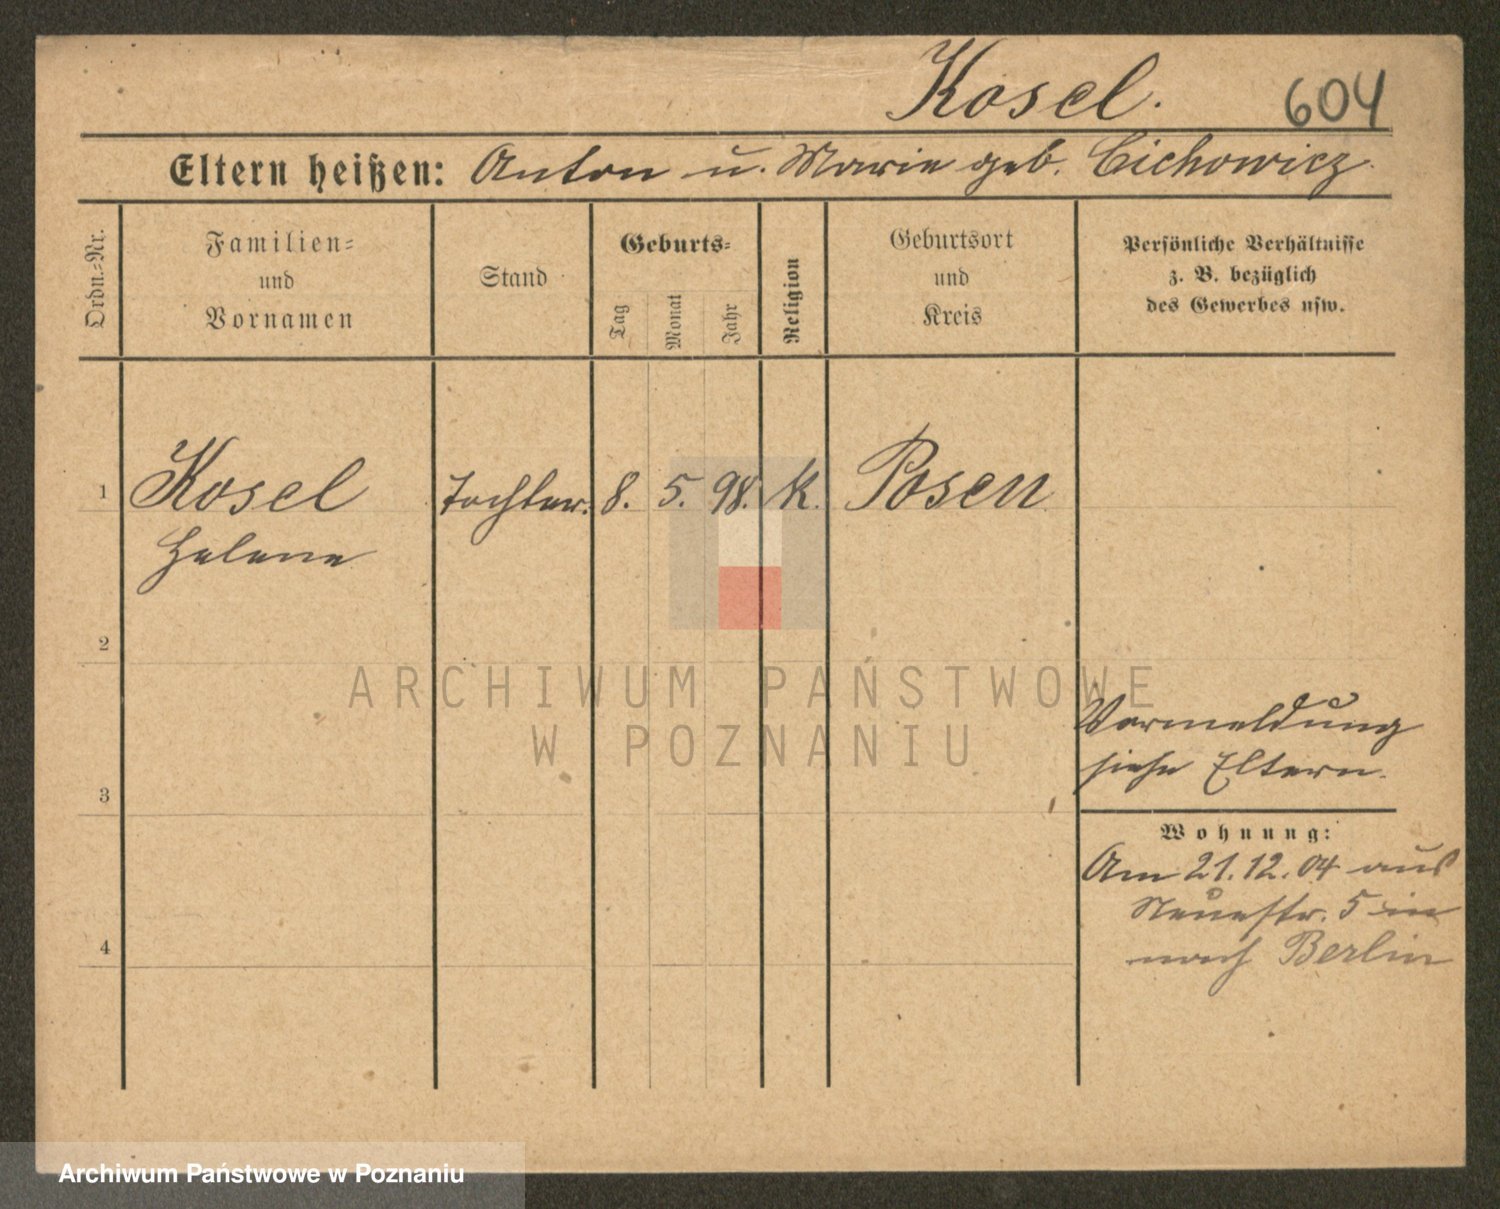 Kosel.
604
Eltern heißen: Anton u. Marie geb. Cichowicz.
Ordn.=Nr.
Familien=
und
Vornamen
Stand
Geburts=
Tag
Monat
Jahr
Religion
Geburtsort
und
Kreis
Persönliche Verhältnisse
z. B. bezüglich
des Gewerbes usw.
1 Kosel Tochter. 8. 5. 98. k. Posen
Helene
2
ARCHIWUM PAŃSTWOWE
W POZNANIU
Vormeldung
siehe Eltern.
3
Wohnung:
Am 21.12.04 aus
Neuestr. 5 in
nach Berlin
4
Archiwum Państwowe w Poznaniu